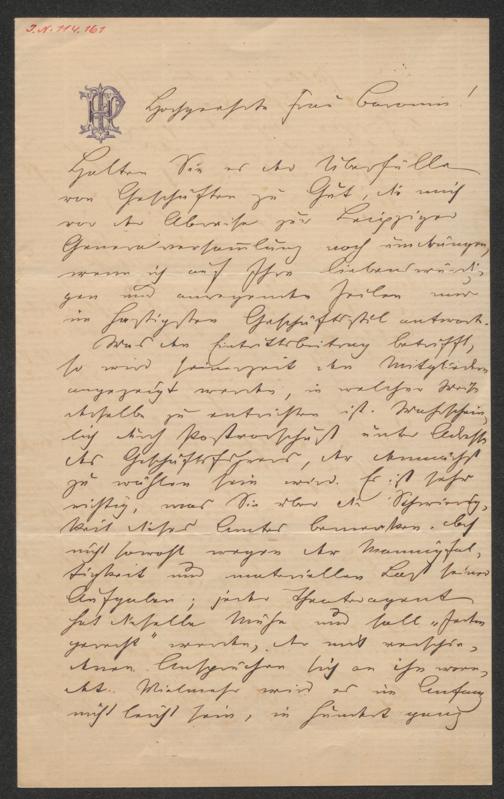 I.N. 114.161
Hochgeehrte Frau Baronin!
Halten Sie es der Überfülle
von Geschäften zu Gut, die mich
vor der Abreise zur Leipziger
Generalversammlung noch umdrängen,
wenn ich auf Ihre liebenswürdi-
gen und anregenden Zeilen nur
im hastigsten Geschäftsstil antworte.
Was den Eintrittsbeitrag betrifft,
so wird seinerzeit den Mitgliedern
angezeigt werden, in welcher Weise
derselbe zu entrichten ist. Wahrschein-
lich durch Postvorschuß unter Adresse
des Geschäftsführers, der demnächst
zu wählen sein wird. Es ist sehr
richtig, was Sie über die Schwierig-
keit dieses Amtes bemerken. doch
nicht sowohl wegen der Mannigfal-
tigkeit und materiellen Last seiner
Aufgaben; jeder Theateragent
hat dieselbe Mühe und soll "Jeden
gerecht" werden, der mit verschie-
denen Ansprüchen sich an ihn wen-
det. Vielmehr wird es im Anfang
nicht leicht sein, in hundert ganz